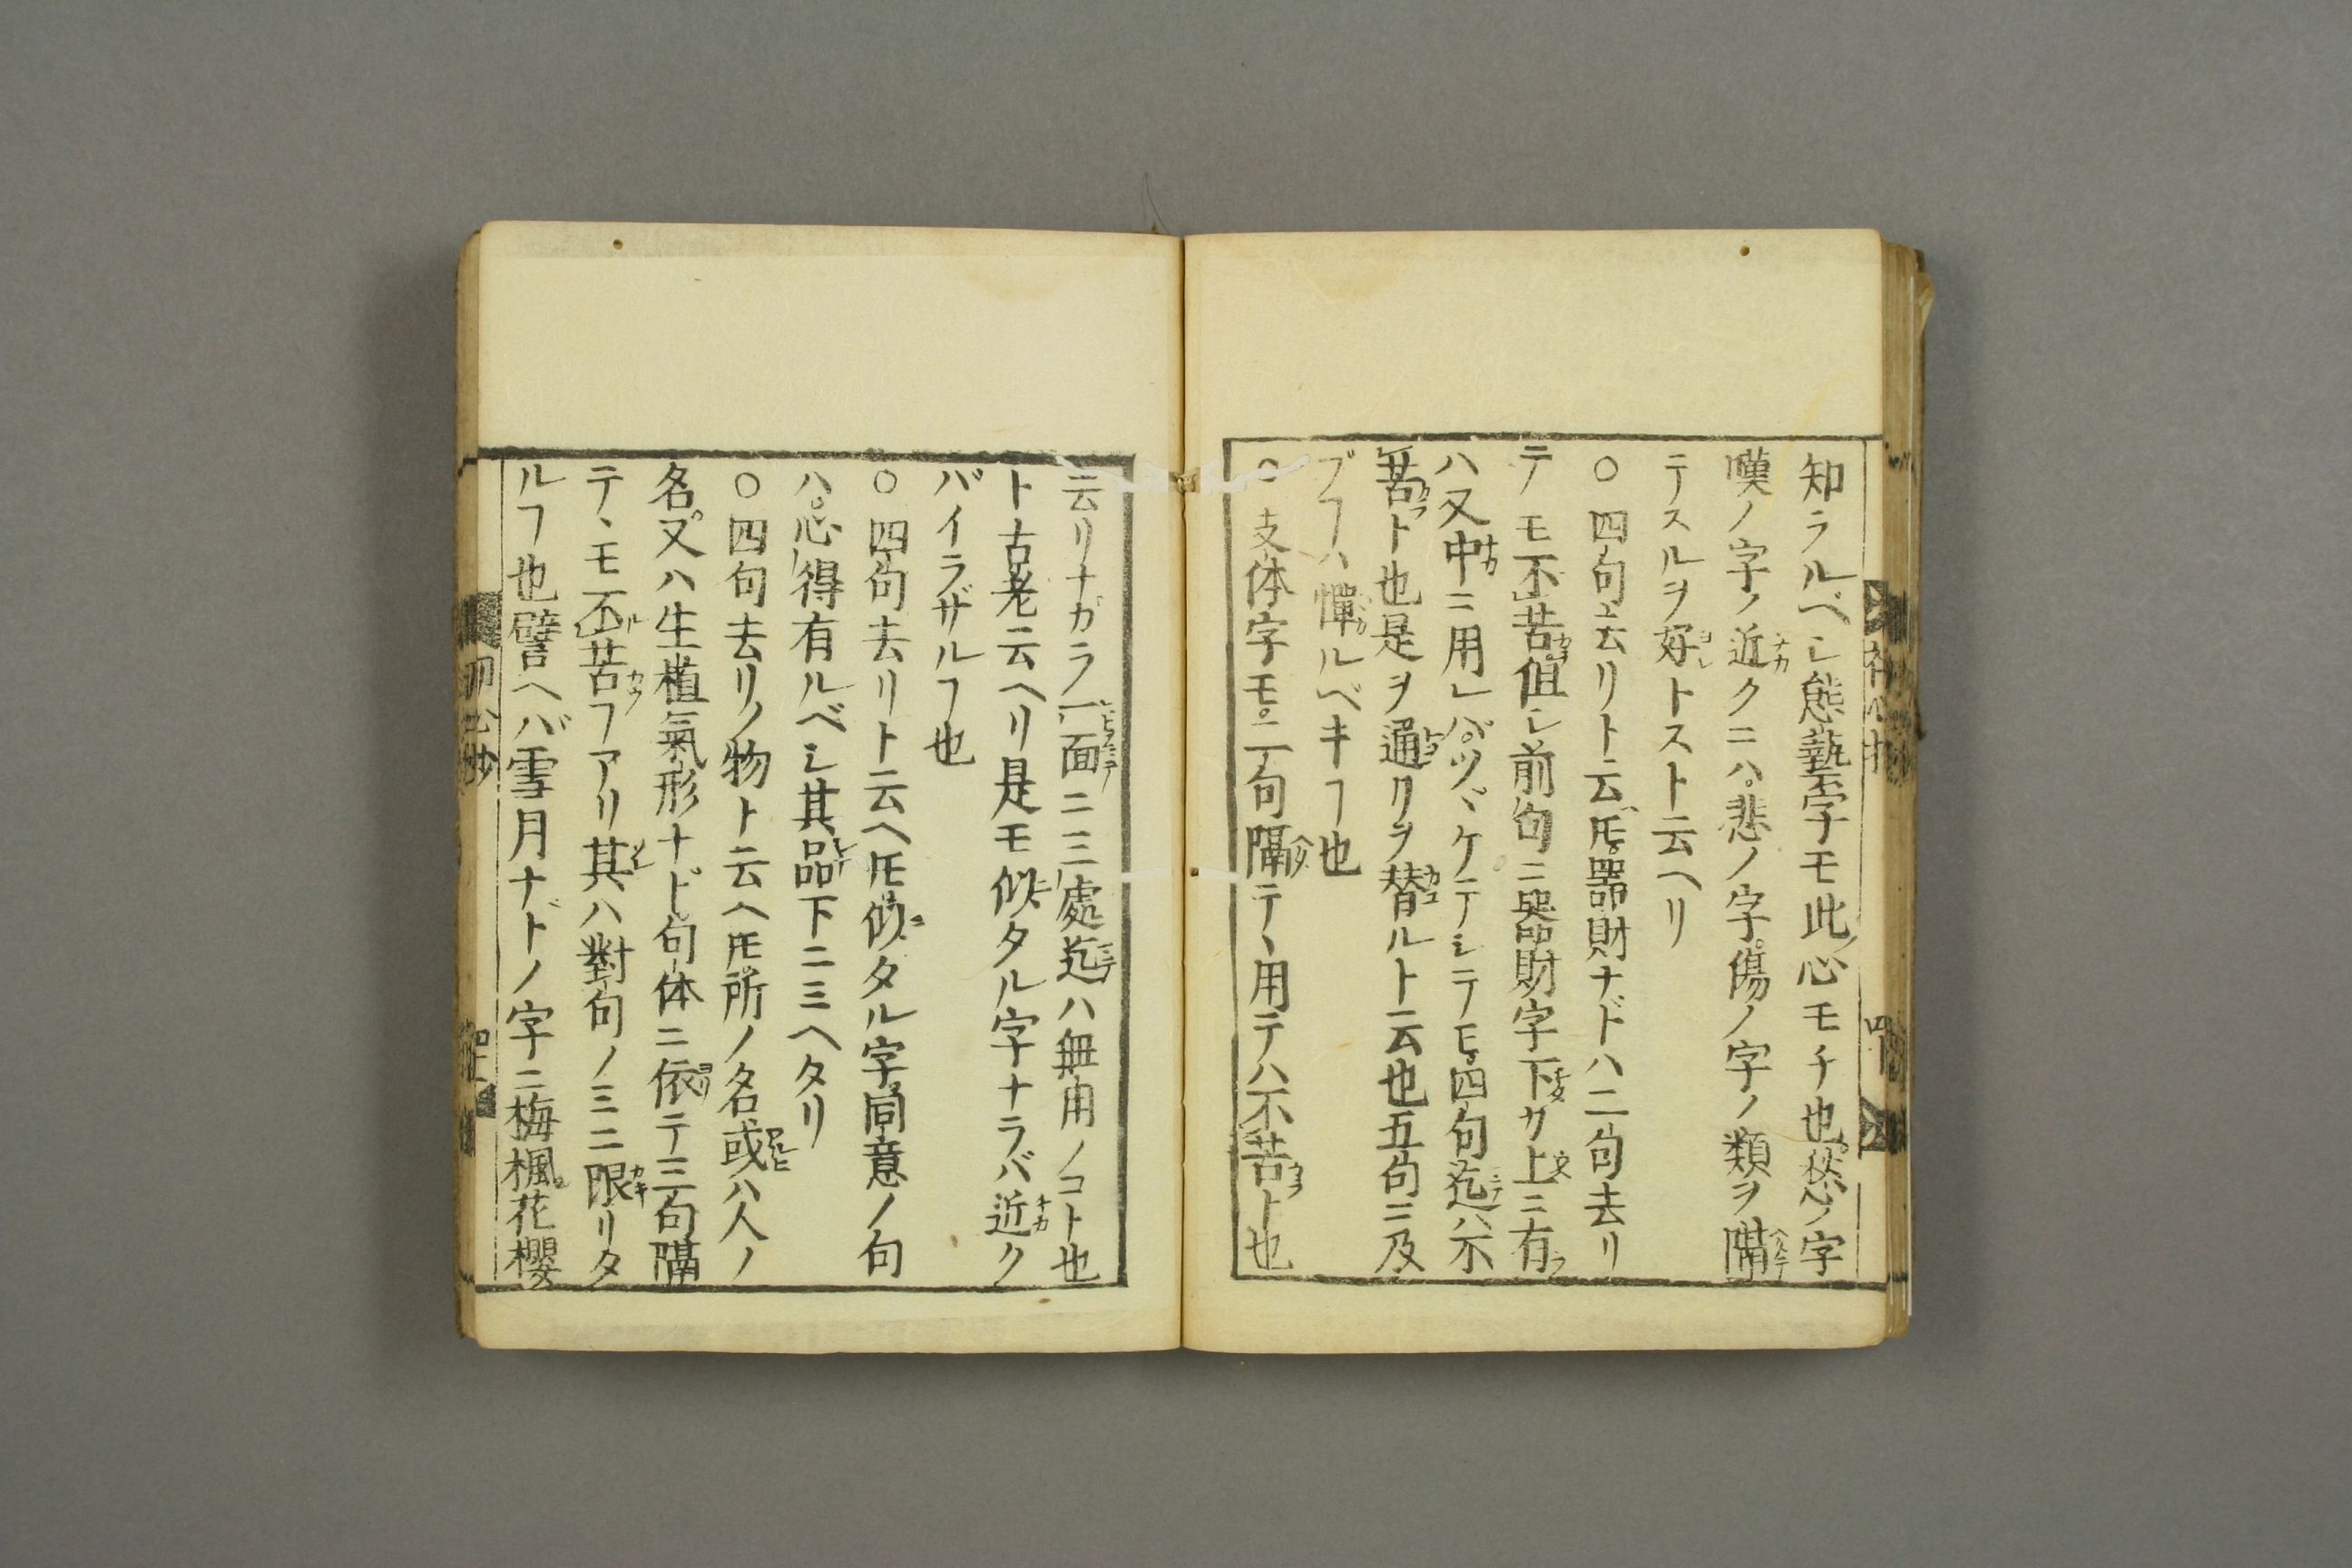 知ラルベシ態藝字モ此心モチ也愁ノ字
嘆ノ字ノ近クニハ悲ノ字傷ノ字ノ類ヲ隔
テスルヲ好トスト云ヘリ
○四句去リト云𪜈器財ナドハ二句去リ
テモ不苦但シ前句ニ器財字下カ上ニ有
ハ又中ニ用レバツヾケテシテモ四句迄ハ不
苦ト也是ヲ通クヲ替ルト云也五句ニ及
ブヿハ憚ルベキヿ也
○支体字モ二句隔テヽ用テハ不苦ト也
云リナガラ一面ニ三處迄ハ無用ノコト也
ト古老云ヘリ是モ似タル字ナラバ近ク
バイラザルヿ也
○四句去リト云ヘ𪜈似タル字同意ノ句
ハ心得有ルベシ其品下ニミヘタリ
○四句去リノ物ト云ヘ𪜈所ノ名或ハ人ノ
名又ハ生植氣形ナド句体ニ依テ三句隔
テヽモ不苦ヿアリ其ハ對句ノミニ限リタ
ルヿ也譬ヘバ雪月ナドノ字ニ梅楓花櫻